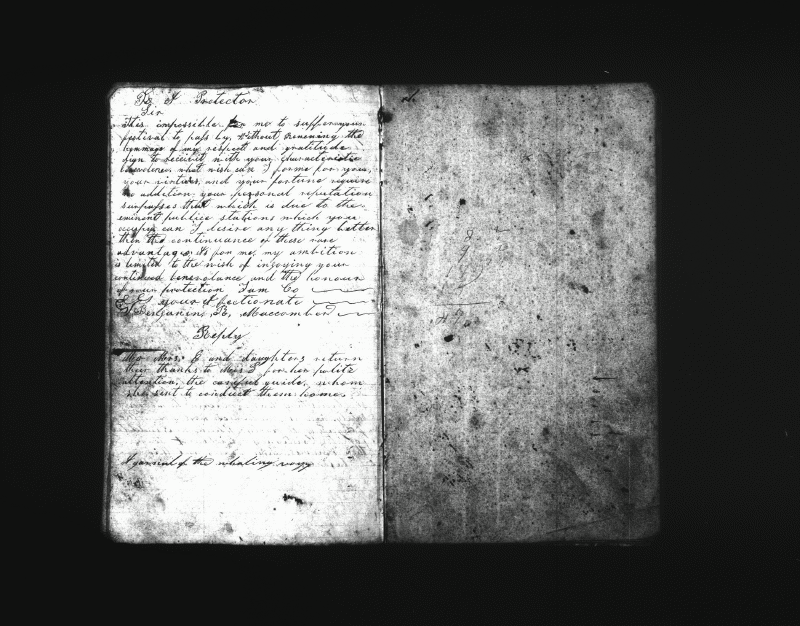 To A Protector
Sir
This impossible for me to suffer your
festival to pass by, without renewing the
hommage of my respect and gratitude
dign to receive it with your characteristic
benevolence what wish can I forme for you,
your virtues, and your fortune require
no addition, your personal reputation
surpasses that which is due to the
eminent publice stations which you
occupy can I desire any thing better
then the continuance of these rare
advantages As for me, my ambition
is limited to the wish of injoying your
continued benevolance and the honour
of your protection I am Co
your affectionate
Benjamin R. Maccomber
Reply
Mr Mrs. G and daughters return
their thanks to Mrs S for her polite
attention, the careful guide, whom
she sent to conduct them home.
A journal of the whaling voyg